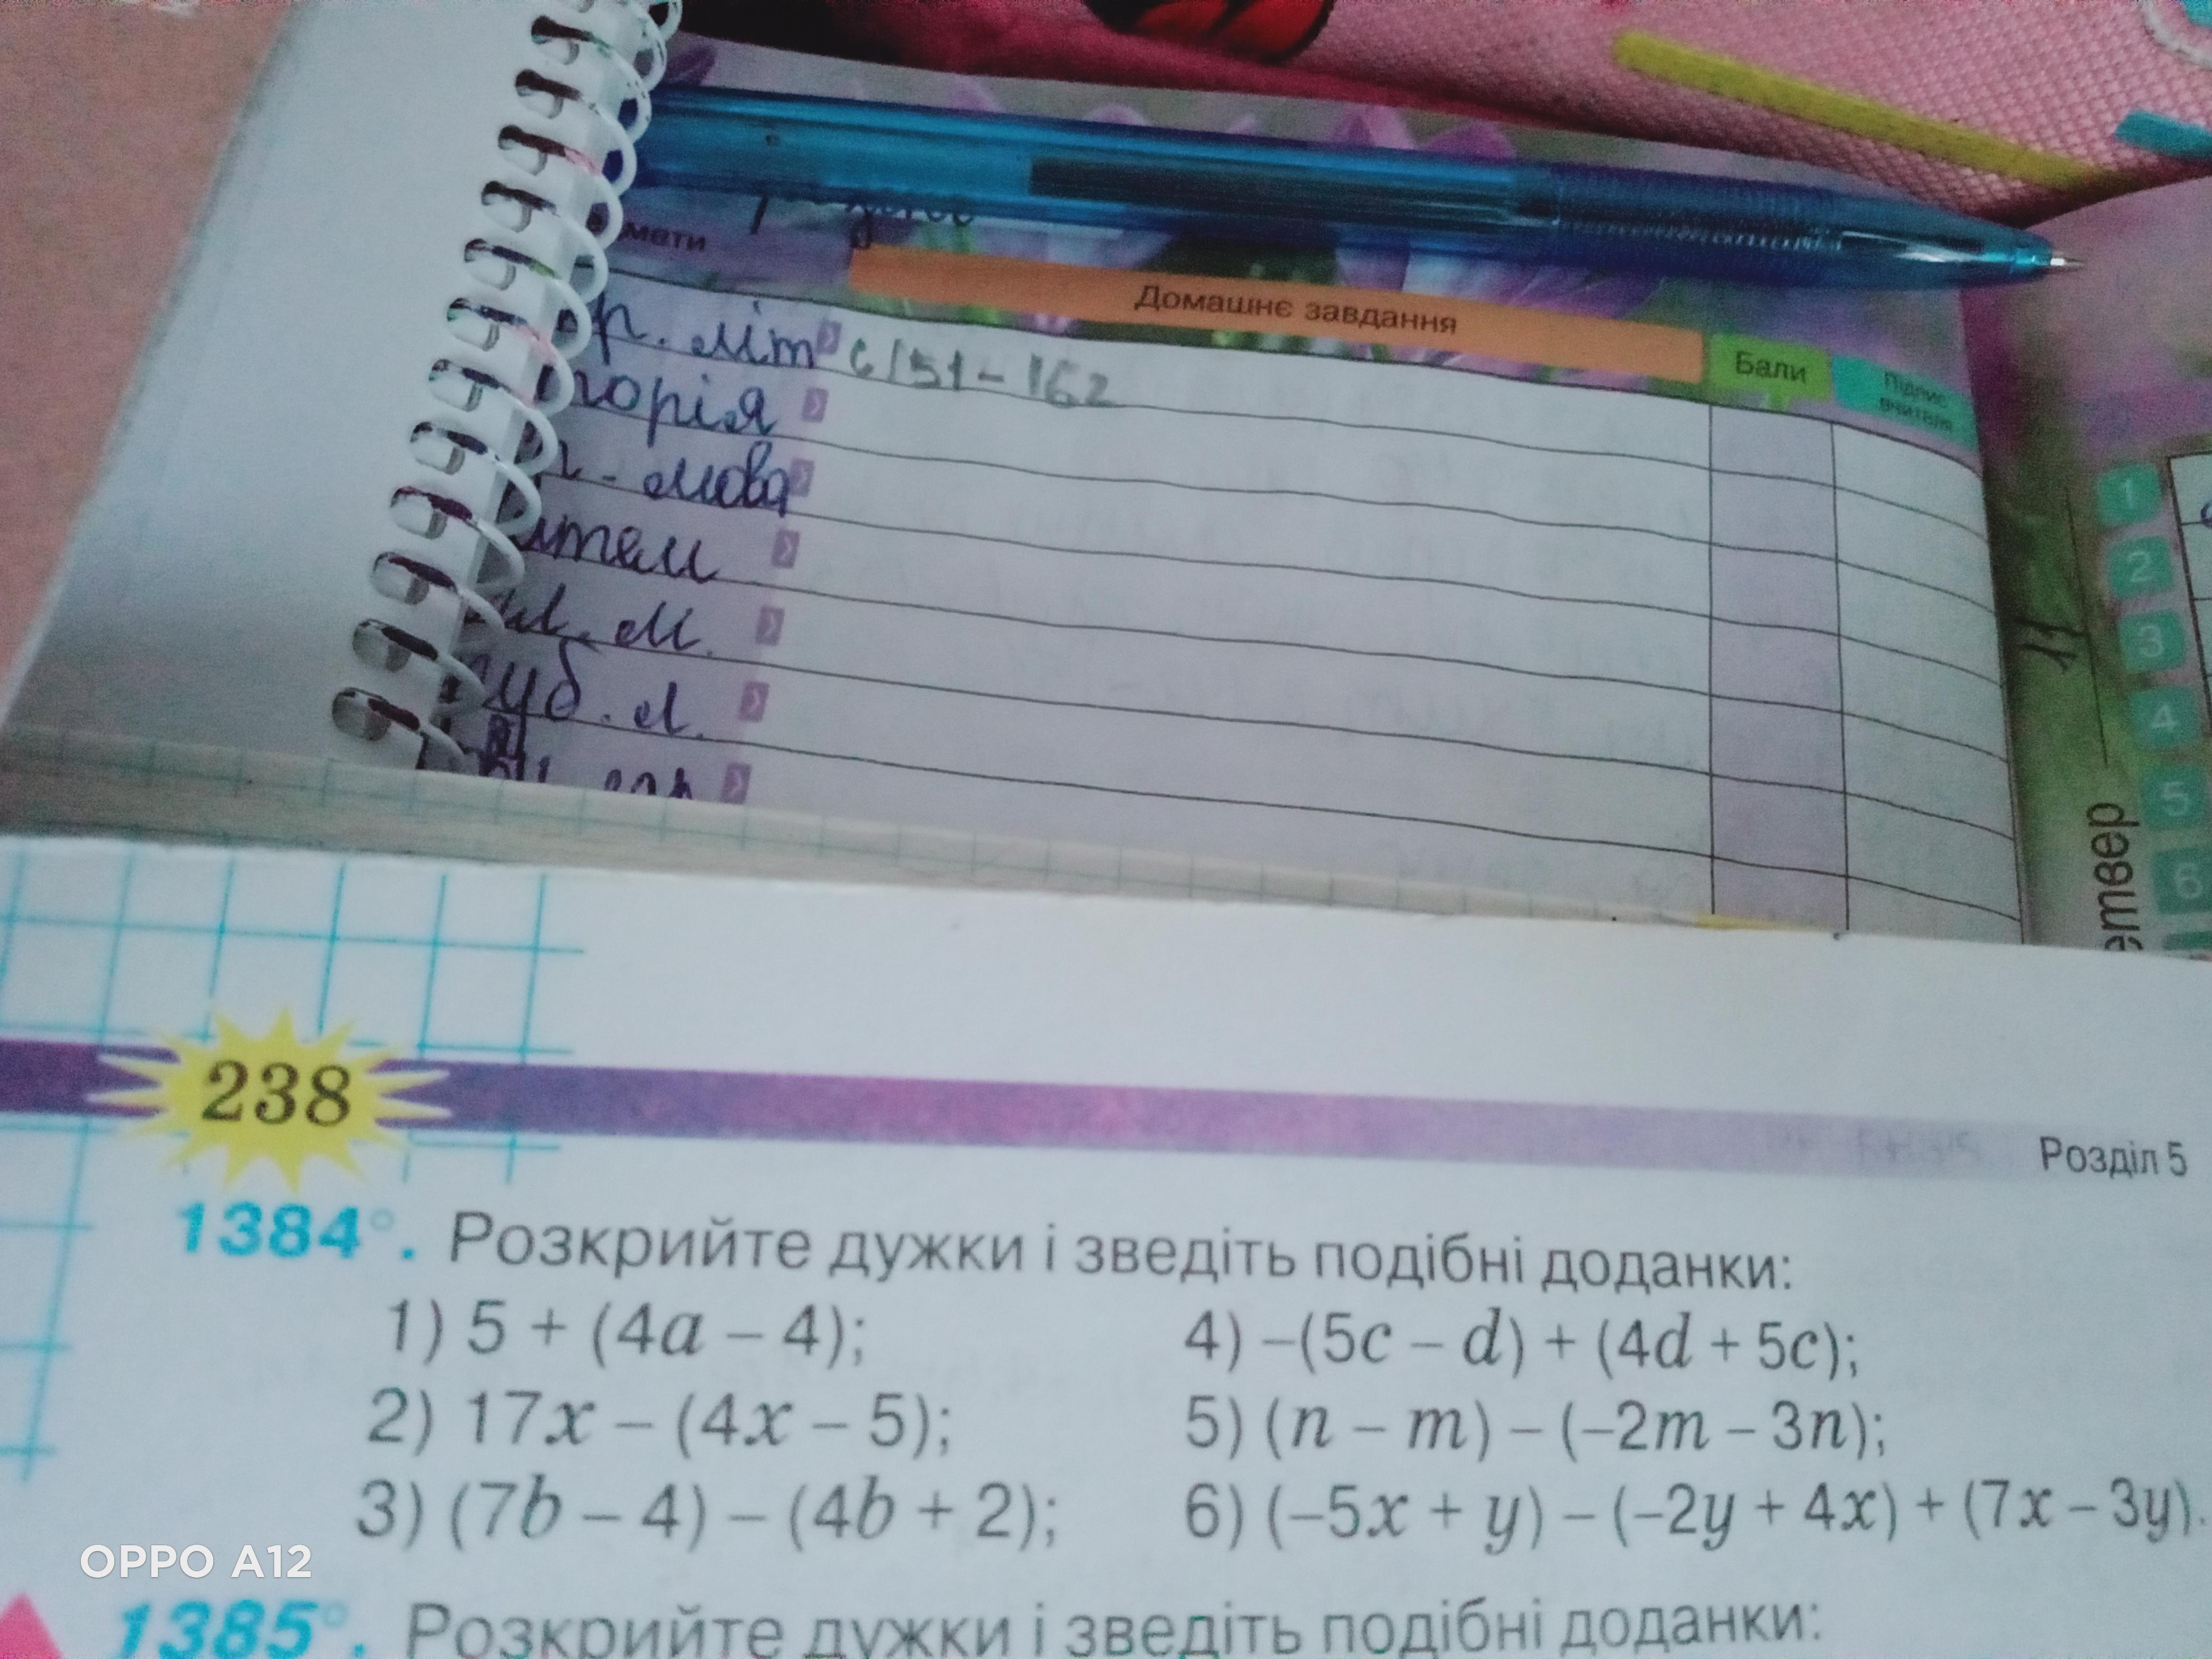 мети
Домашнє завдання
Бали
Підпис вчителя
р. літ с 151-162
торія
мова
матем
м.
зуб. л.
1
2
3
4
5
6
11
етвер
238
Розділ 5
1384°. Розкрийте дужки і зведіть подібні доданки:
1) 5 + (4a – 4);
2) 17x – (4x – 5);
3) (7b – 4) – (4b + 2);
4) –(5c – d) + (4d + 5c);
5) (n – m) – (–2m – 3n);
6) (–5x + y) – (–2y + 4x) + (7x – 3y).
1385°. Розкрийте дужки і зведіть подібні доданки:
OPPO A12